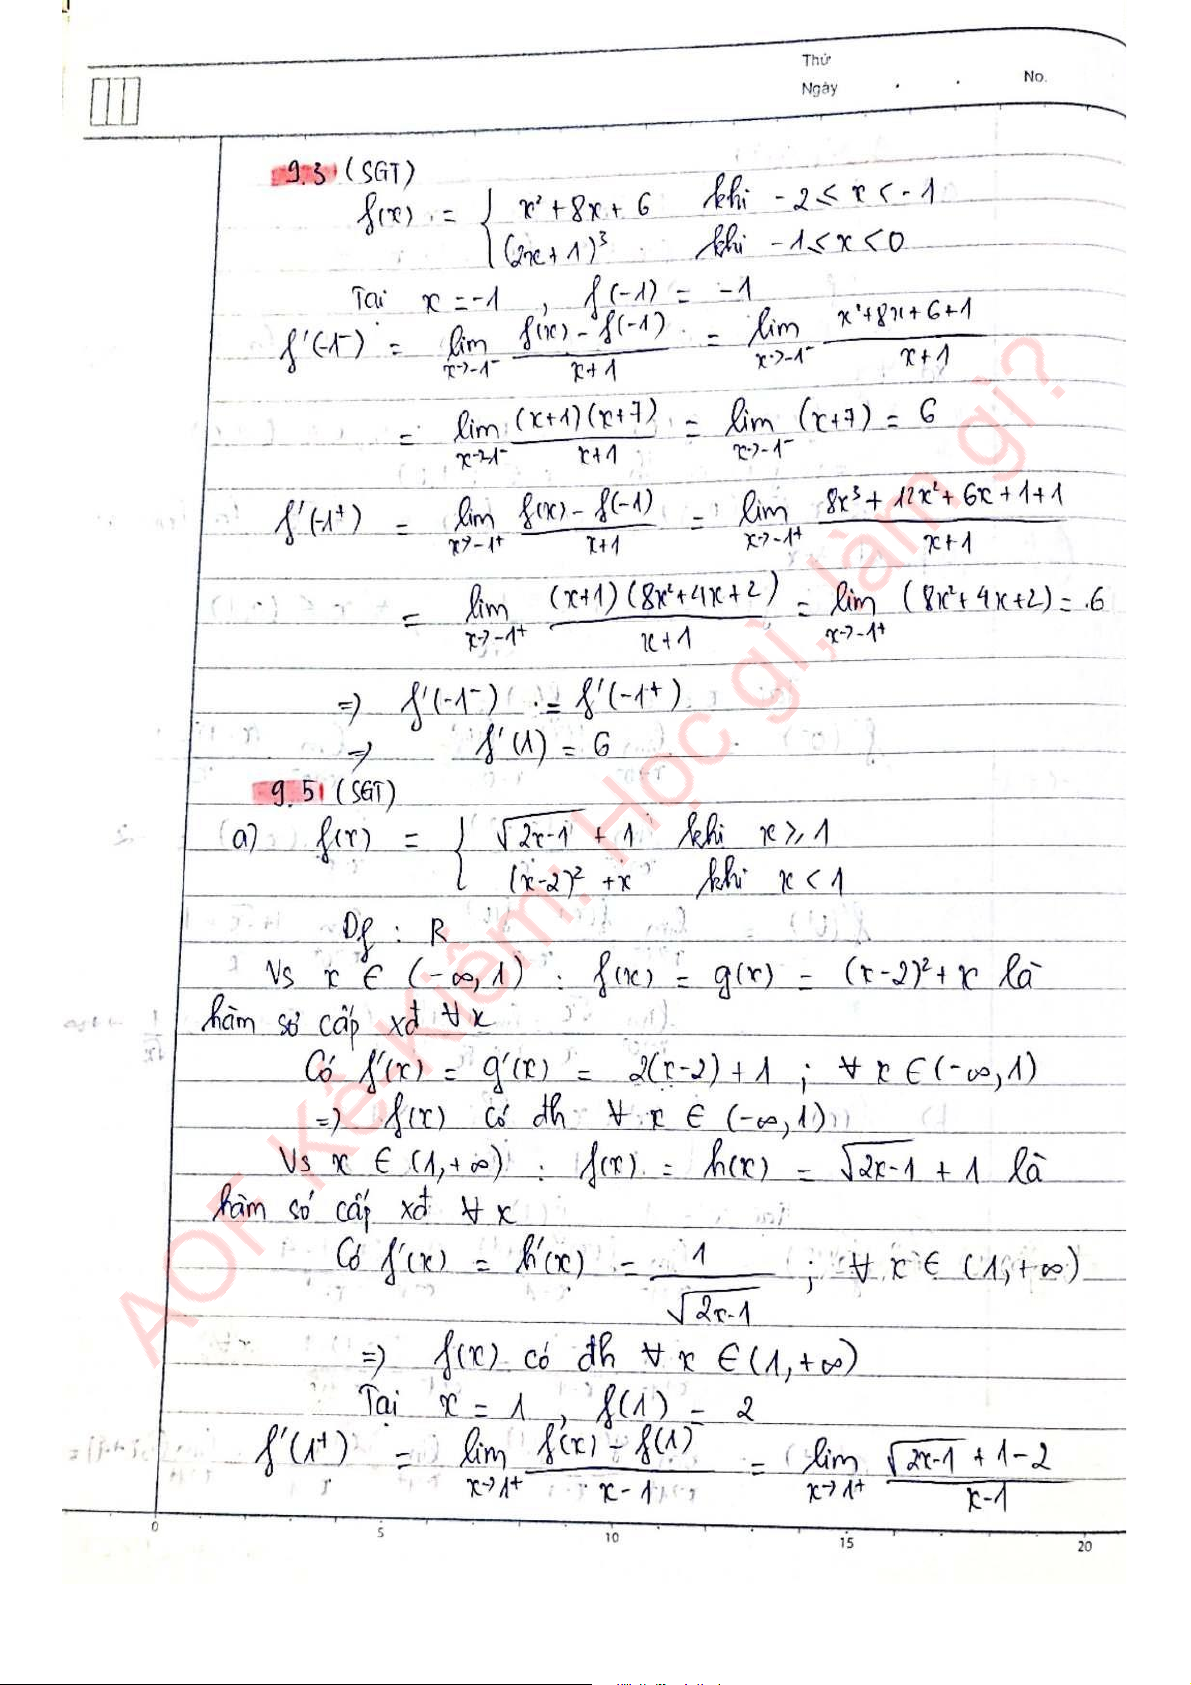 Thứ
Ngày . . No.
9.3 (SGT)
f(x) = { x² + 8x + 6 khi -2 ≤ x < -1
(2x+1)³ khi -1 ≤ x < 0
Tại x = -1 , f(-1) = -1
f'(-1⁻) = lim x→-1⁻ (f(x) - f(-1))/(x+1) = lim x→-1⁻ (x²+8x+6+1)/(x+1)
= lim x→-1⁻ ((x+1)(x+7))/(x+1) = lim x→-1⁻ (x+7) = 6
f'(-1⁺) = lim x→-1⁺ (f(x) - f(-1))/(x+1) = lim x→-1⁺ (8x³ + 12x² + 6x + 1 + 1)/(x+1)
= lim x→-1⁺ ((x+1)(8x²+4x+2))/(x+1) = lim x→-1⁺ (8x²+4x+2) = 6
=> f'(-1⁻) = f'(-1⁺)
=> f'(1) = 6
9.5 (SGT)
a) f(x) = { √(2x-1) + 1 khi x ≥ 1
(x-2)² + x khi x < 1
Df : R
Vs x ∈ (-∞, 1) : f(x) = g(x) = (x-2)² + x là
hàm sơ cấp xđ ∀x
Có f'(x) = g'(x) = 2(x-2) + 1 ; ∀ x ∈ (-∞, 1)
=> f(x) có đh ∀ x ∈ (-∞, 1)
Vs x ∈ (1, +∞) : f(x) = h(x) = √(2x-1) + 1 là
hàm số cấp xđ ∀ x
Có f'(x) = h'(x) = 1/√(2x-1) ; ∀ x ∈ (1, +∞)
=> f(x) có đh ∀ x ∈ (1, +∞)
Tại x = 1 , f(1) = 2
f'(1⁺) = lim x→1⁺ (f(x) - f(1))/(x-1) = lim x→1⁺ (√(2x-1) + 1 - 2)/(x-1)
0 5 10 15 20
AOF Kè Kiếm: Học gì, làm gì?